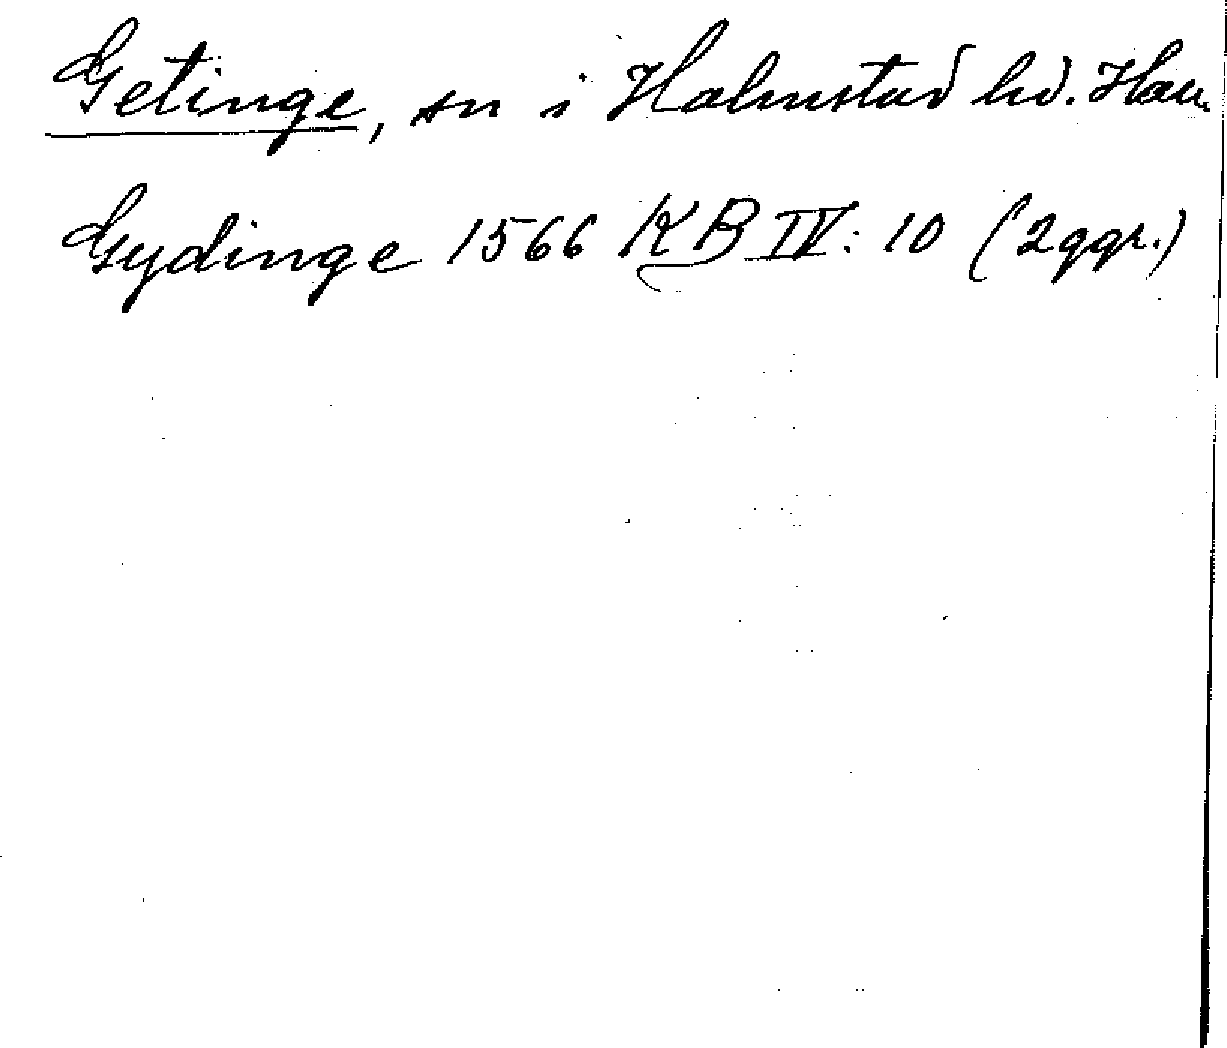 Getinge, sn i Halmstad hd. Hall.
Gydinge 1566 KB IV: 10 (2ggr.)